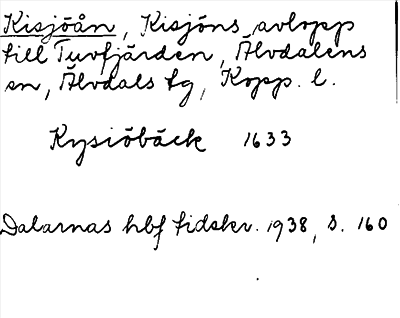 Kisjöån, Kisjöns avlopp
till Tuvfjärden, Älvdalens
sn, Älvdals tg, Kopp. l.
Kysiöbäck 1633
Dalarnas hbf tidskr. 1938, s. 160